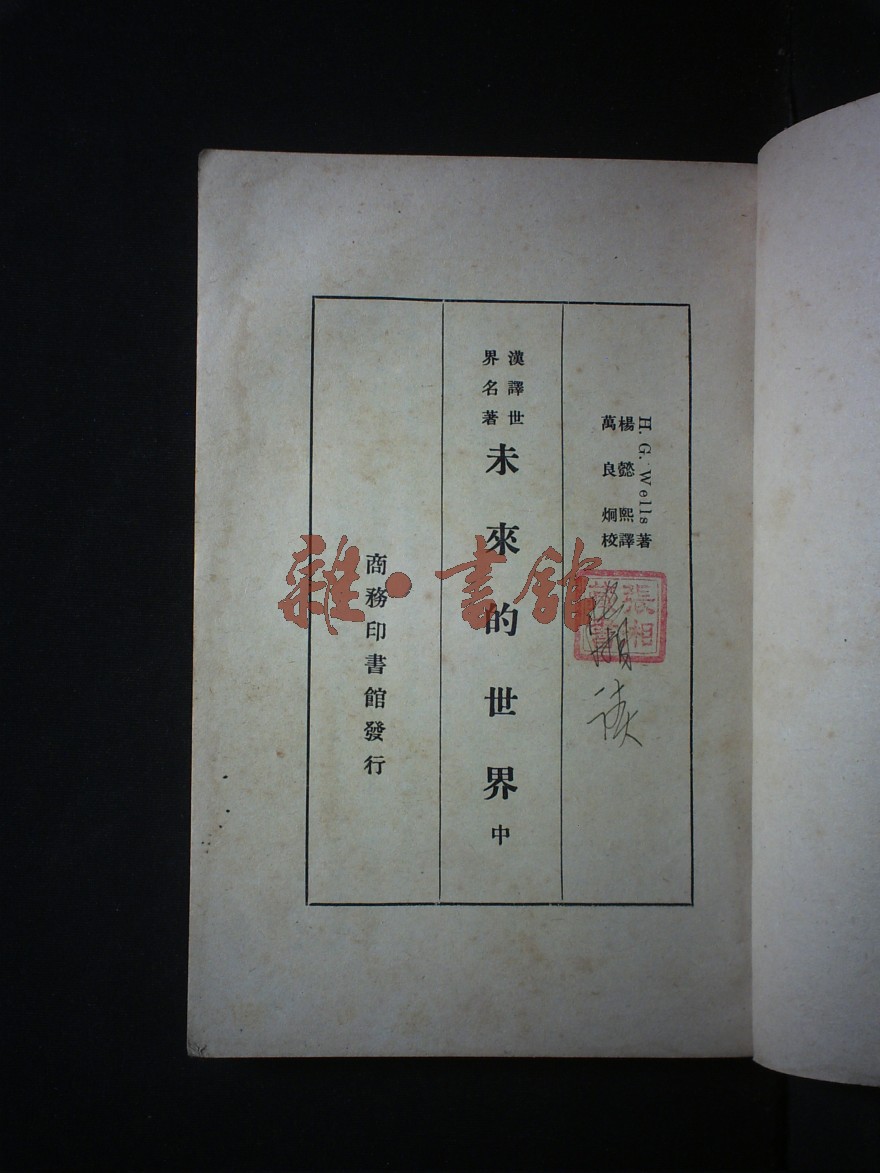 H. G. Wells著
楊懿熙譯
萬良炯校
漢譯世
界名著
未來的世界 中
商務印書館發行
雜·書館
張相